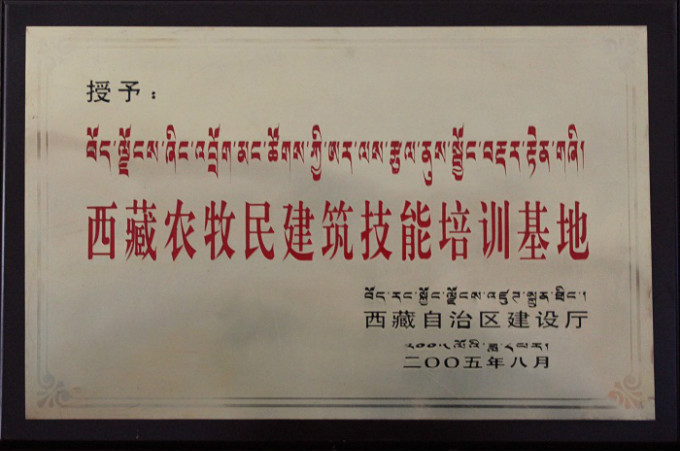 授予：
བོད་ལྗོངས་ཞིང་འབྲོག་མང་ཚོགས་ཀྱི་ཨར་ལས་རྩལ་ནུས་སྦྱོང་བརྡར་རྟེན་གཞི།
西藏农牧民建筑技能培训基地
བོད་རང་སྐྱོང་ལྗོངས་འཛུགས་སྐྲུན་ཐིང་།
西藏自治区建设厅
二〇〇五年八月